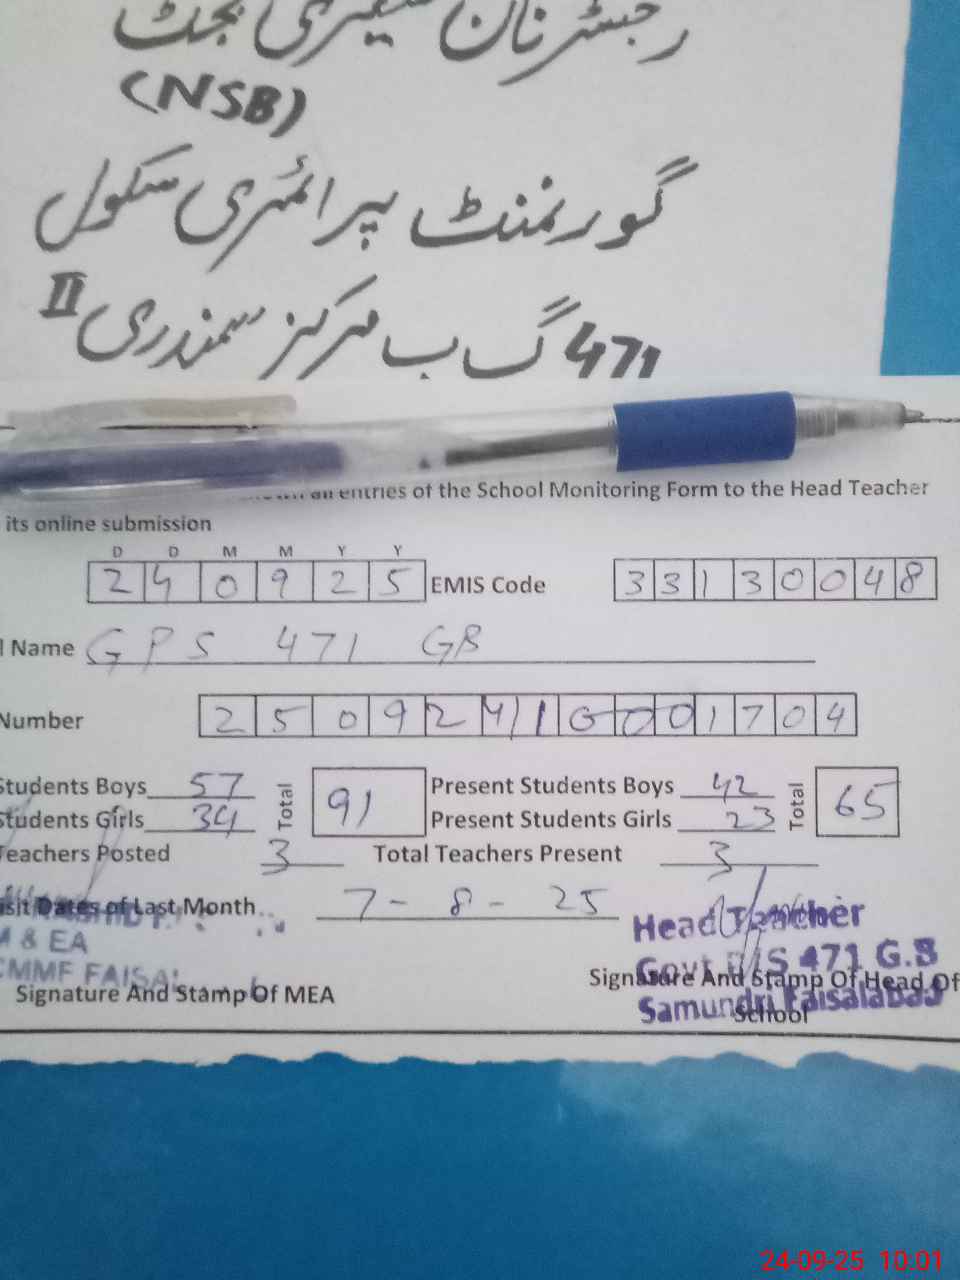 رجسٹر نان سیلری بجٹ
(NSB)
گورنمنٹ پرائمری سکول
471 گ ب مرکز سمندری II
all entries of the School Monitoring Form to the Head Teacher
its online submission
D D M M Y Y
2 4 0 9 2 5 EMIS Code 3 3 1 3 0 0 4 8
Name GPS 471 GB
Number 2 5 0 9 2 4 1 0 0 0 1 7 0 4
Students Boys 57 Total 91 Present Students Boys 42 Total 65
Students Girls 34 Present Students Girls 23
Teachers Posted 3 Total Teachers Present 3
Visit Dates of Last Month 7-8-25
Head Teacher
M & EA
Govt P/S 471 G.B
CMMF FAISAL
Signature And Stamp Of MEA
Signature And Stamp Of Head Of
School
Samundri Faisalabad
24-09-25 10:01